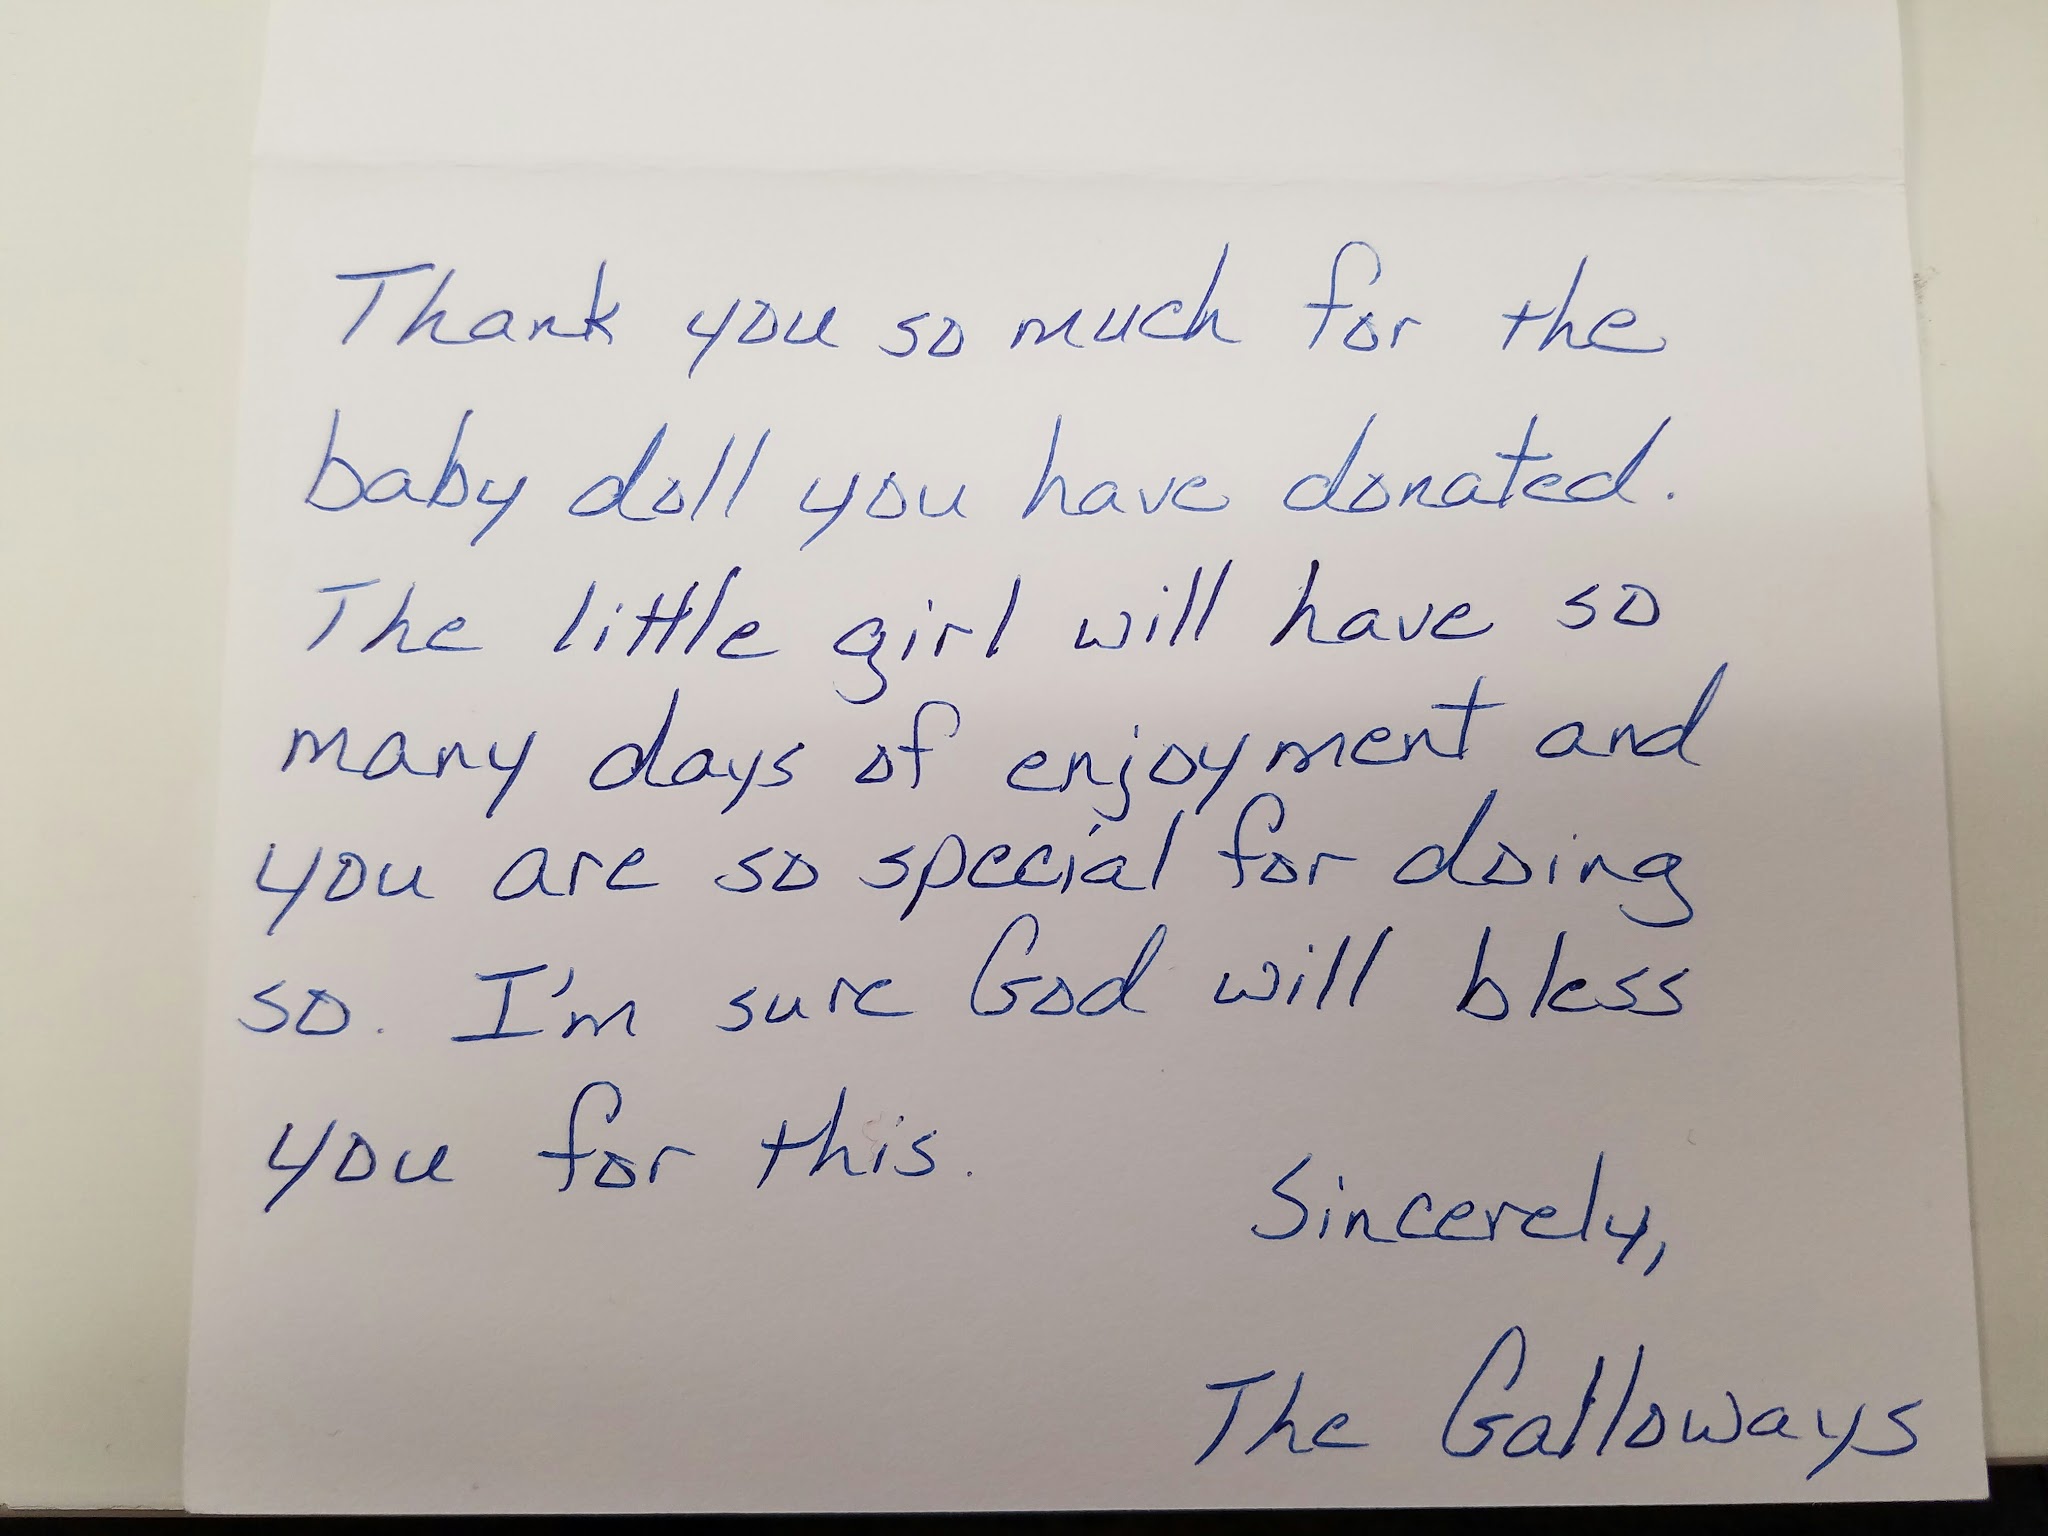 Thank you so much for the
baby doll you have donated.
The little girl will have so
many days of enjoyment and
you are so special for doing
so. I'm sure God will bless
you for this.
Sincerely,
The Galloways